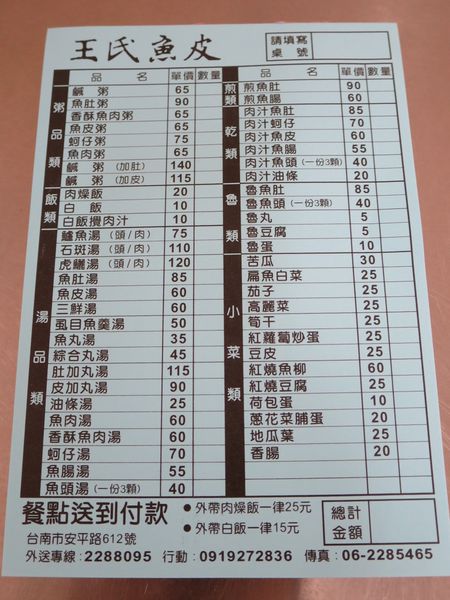 王氏魚皮
請填寫桌號
品名 單價 數量
粥品類
鹹粥 65
魚肚粥 90
香酥魚肉粥 65
魚皮粥 65
蚵仔粥 75
魚肉粥 65
鹹粥(加肚) 140
鹹粥(加皮) 115
飯類
肉燥飯 20
白飯 10
白飯攪肉汁 10
湯品類
鱸魚湯(頭/肉) 75
石斑湯(頭/肉) 110
虎鱺湯(頭/肉) 120
魚肚湯 85
魚皮湯 60
三鮮湯 60
虱目魚羹湯 50
魚丸湯 35
綜合丸湯 45
肚加丸湯 115
皮加丸湯 90
油條湯 25
魚肉湯 60
香酥魚肉湯 60
蚵仔湯 70
魚腸湯 55
魚頭湯(一份3顆) 40
品名 單價 數量
煎類
煎魚肚 90
煎魚腸 60
乾類
肉汁魚肚 85
肉汁蚵仔 70
肉汁魚皮 60
肉汁魚腸 55
肉汁魚頭(一份3顆) 40
肉汁油條 20
魯類
魯魚肚 85
魯魚頭(一份3顆) 40
魯丸 5
魯豆腐 5
魯蛋 10
小菜類
苦瓜 30
扁魚白菜 25
茄子 25
高麗菜 25
筍干 25
紅蘿蔔炒蛋 25
豆皮 25
紅燒魚柳 60
紅燒豆腐 25
荷包蛋 10
蔥花菜脯蛋 20
地瓜葉 25
香腸 20
餐點送到付款
●外帶肉燥飯一律25元
●外帶白飯一律15元
總計金額
台南市安平路612號
外送專線:2288095 行動:0919272836 傳真:06-2285465